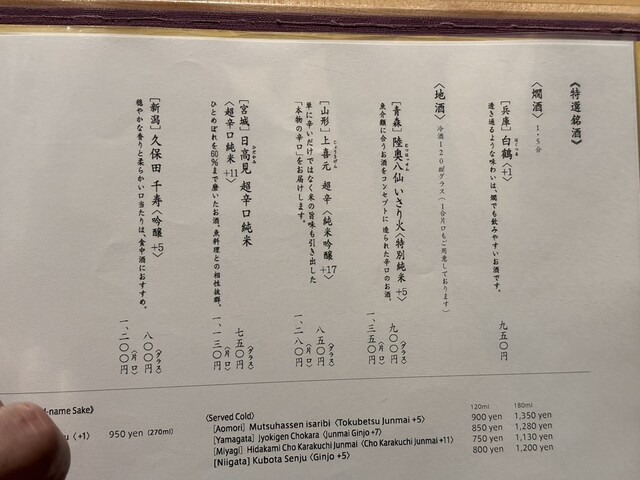 《特選銘酒》
〈燗酒〉 1.5合
［兵庫］白鶴〈+1〉 九五〇円
透き通るような味わいは、燗でも飲みやすいお酒です。
〈地酒〉 冷酒120mlグラス（1合片口もご用意しております）
［青森］陸奥八仙 いさり火〈特別純米 +5〉 九〇〇円（グラス）
魚介類に合うお酒をコンセプトに造られた辛口のお酒。 一、三五〇円（片口）
［山形］上喜元 超辛〈純米吟醸 +17〉 八五〇円（グラス）
単に辛いだけではなく米の旨味も引き出した 一、二八〇円（片口）
「本物の辛口」をお届けします。
［宮城］日高見 超辛口純米
〈超辛口純米 +11〉 七五〇円（グラス）
ひとめぼれを60%まで磨いたお酒。魚料理との相性抜群。 一、一三〇円（片口）
［新潟］久保田 千寿〈吟醸 +5〉 八〇〇円（グラス）
穏やかな香りと柔らかい口当たりは、食中酒におすすめ。 一、二〇〇円（片口）
-name Sake》
〈+1〉 950 yen (270ml)
〈Served Cold〉 120ml 180ml
[Aomori] Mutsuhassen isaribi〈Tokubetsu Junmai +5〉 900 yen 1,350 yen
[Yamagata] Jyokigen Chokara〈junmai Ginjo +7〉 850 yen 1,280 yen
[Miyagi] Hidakami Cho Karakuchi Junmai〈Cho Karakuchi Junmai +11〉 750 yen 1,130 yen
[Niigata] Kubota Senju〈Ginjo +5〉 800 yen 1,200 yen